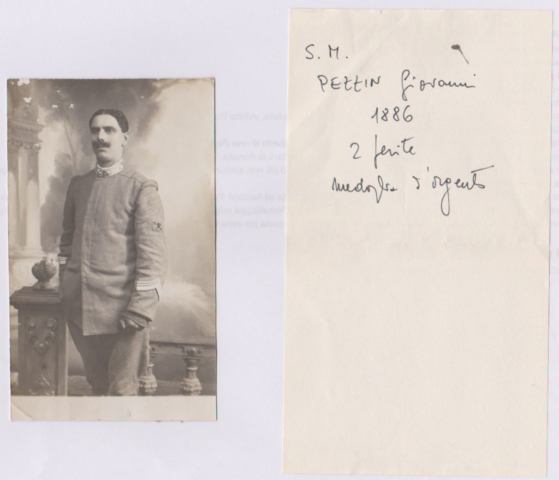 S. M.
PEZZIN Giovanni
1886
2 ferite
medaglia d'argento